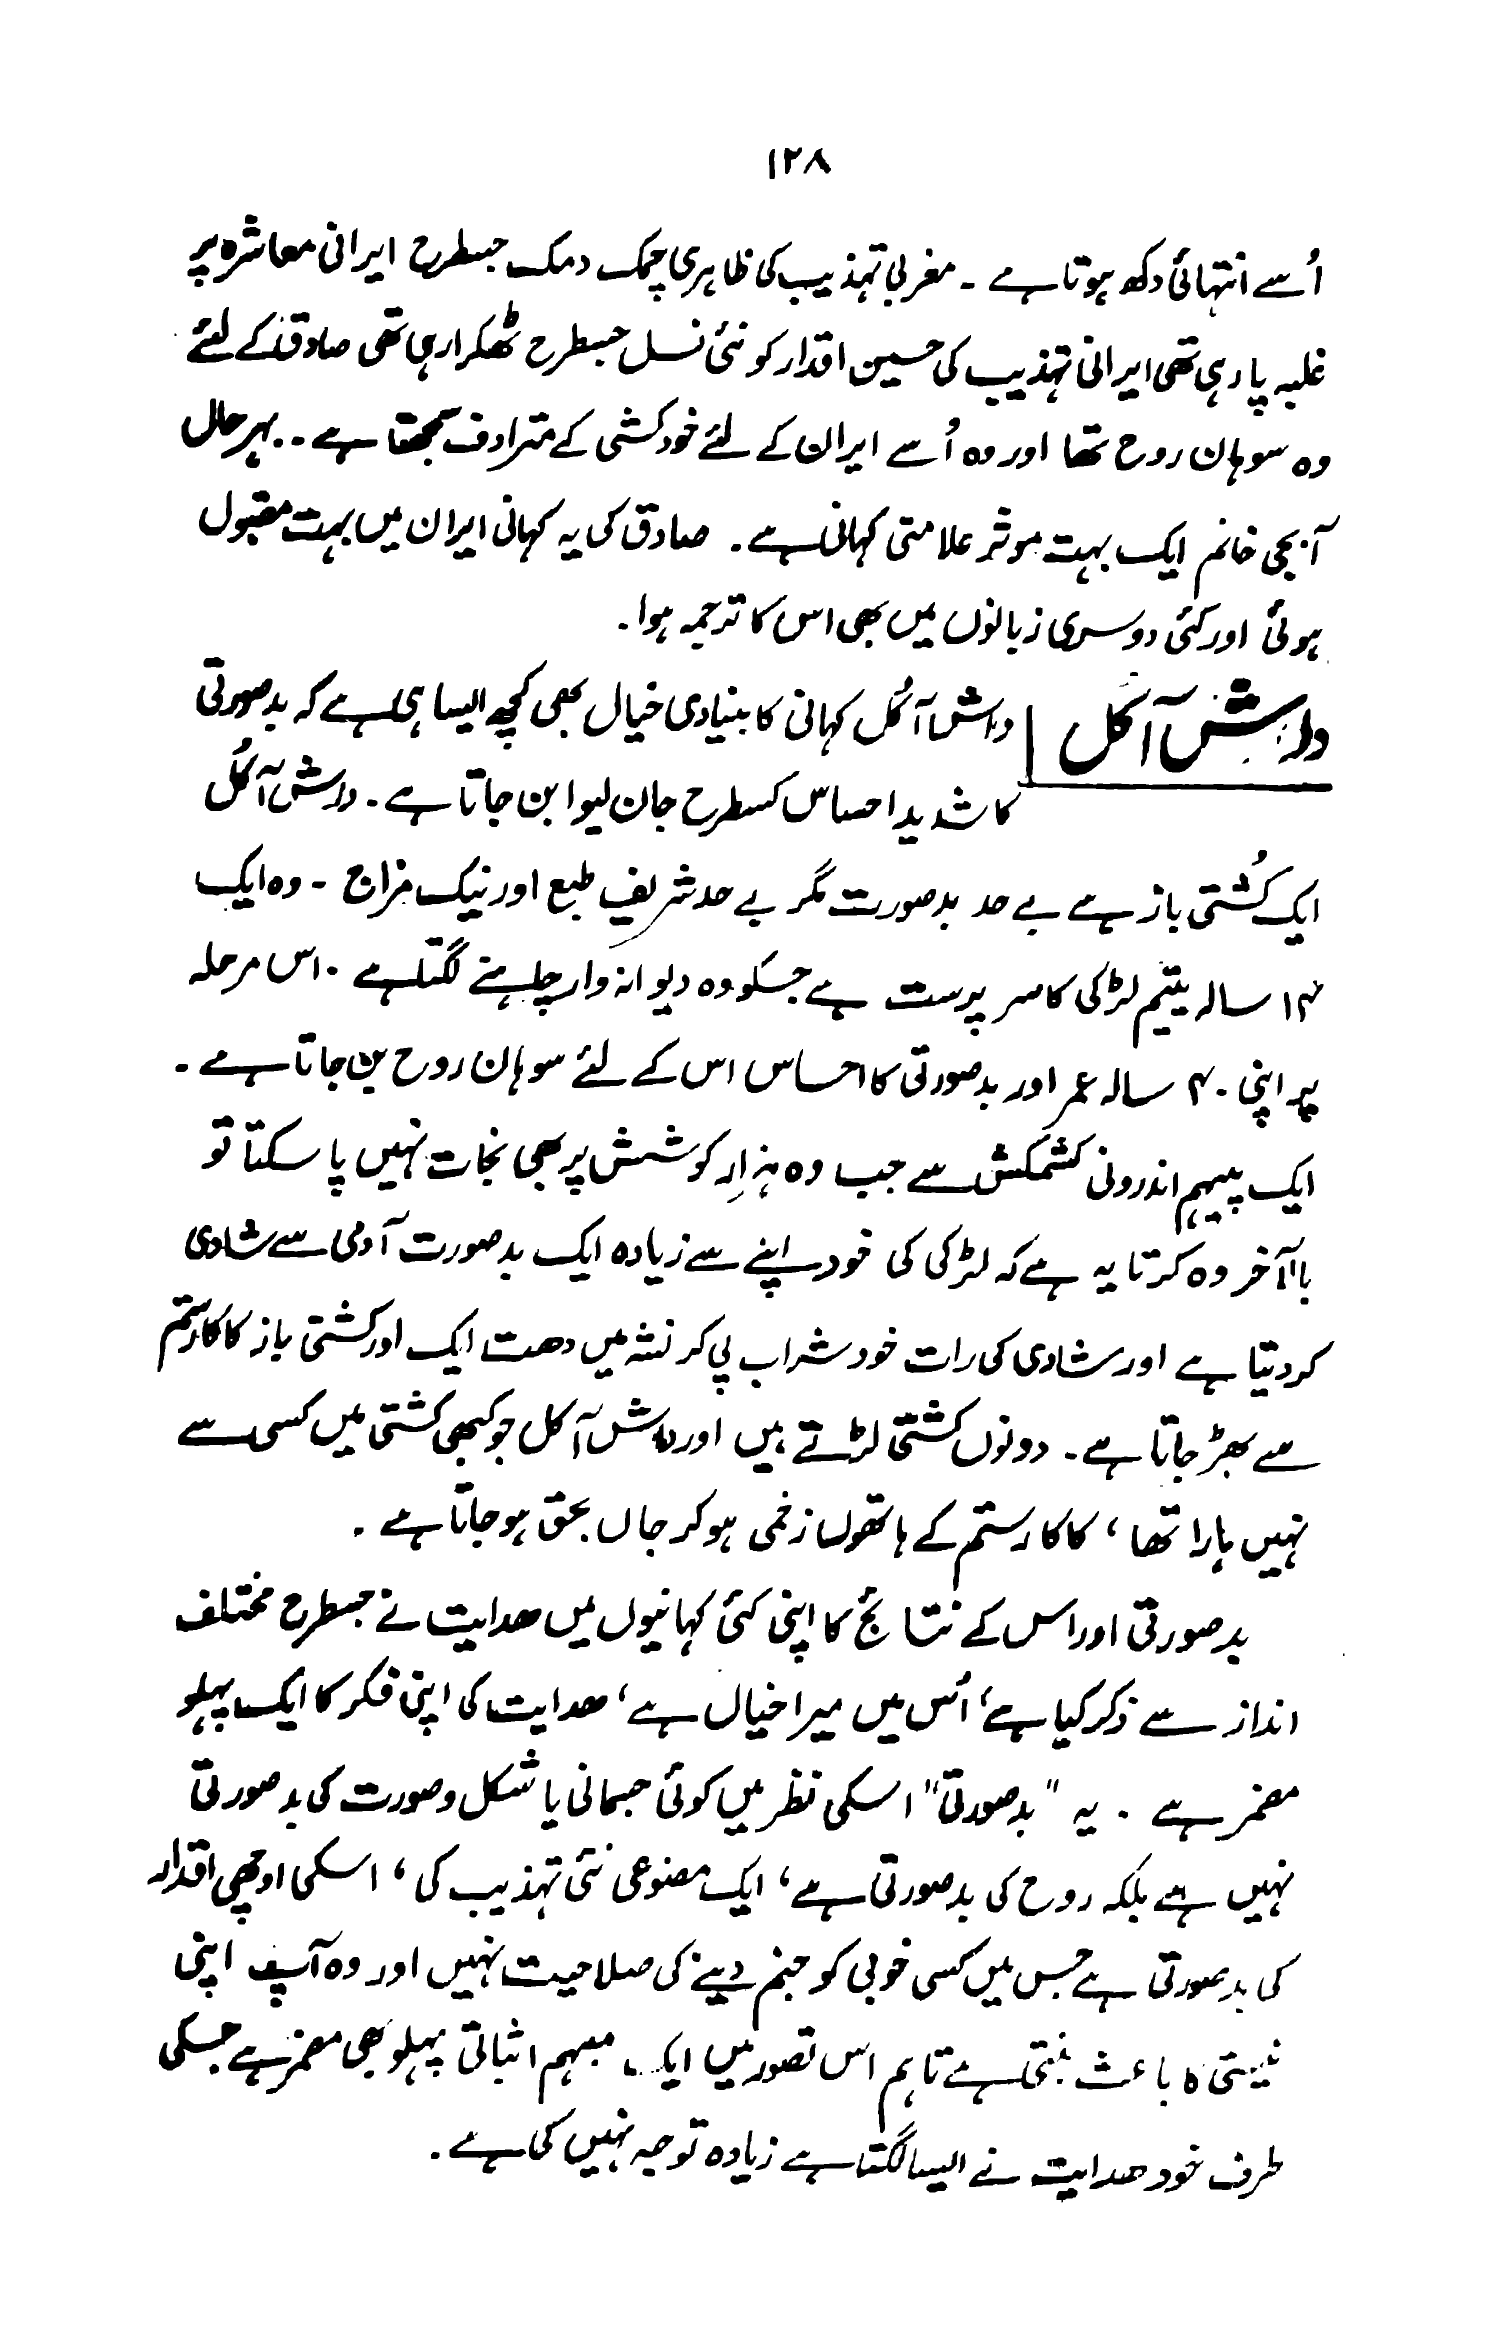 ۱۲۸
اُسے انتہائی دکھ ہوتا ہے ۔ مغربی تہذیب کی ظاہری چمک دمک جسطرح ایرانی معاشرہ پر
غلبہ پا رہی تھی ایرانی تہذیب کی حسین اقدار کو نئی نسل جسطرح ٹھکرا رہی تھی صادق کے لئے
وہ سوہان روح تھا اور وہ اُسے ایران کے لئے خودکشی کے مترادف سمجھتا ہے ۔۔ بہرحال
آبجی خانم ایک بہت موثر علامتی کہانی ہے ۔ صادق کی یہ کہانی ایران میں بہت مقبول
ہوئی اور کئی دوسری زبانوں میں بھی اس کا ترجمہ ہوا ۔
داش آکل | داش آکُل کہانی کا بنیادی خیال بھی کچھ ایسا ہی ہے کہ بدصورتی
کا شدید احساس کسطرح جان لیوا بن جاتا ہے ۔ داش آکُل
ایک کُشتی باز ہے بے حد بدصورت مگر بے حد شریف طبع اور نیک مزاج ۔ وہ ایک
۱۴ سالہ یتیم لڑکی کا سر پرست ہے جسکو وہ دیوانہ وار چاہنے لگتا ہے ۔ اس مرحلہ
پر اپنی ۴۰ سالہ عمر اور بدصورتی کا احساس اس کے لئے سوہان روح بن جاتا ہے ۔
ایک پیہم اندرونی کشمکش سے جب وہ ہزار کوشش پر بھی نجات نہیں پا سکتا تو
باآلآخر وہ کرتا یہ ہے کہ لڑکی کی خود اپنے سے زیادہ ایک بدصورت آدمی سے شادی
کر دیتا ہے اور شادی کی رات خود شراب پی کر نشہ میں دھت ایک اور کشتی باز کاکا رستم
سے بھڑ جاتا ہے ۔ دونوں کشتی لڑتے ہیں اور داش آکل جو کبھی کشتی میں کسی سے
نہیں ہارا تھا ، کاکا رستم کے ہاتھوں زخمی ہو کر جاں بحق ہو جاتا ہے ۔
بدصورتی اور اس کے نتائج کا اپنی کئی کہانیوں میں ھدایت نے جسطرح مختلف
انداز سے ذکر کیا ہے ، اُس میں میرا خیال ہے ، ھدایت کی اپنی فکر کا ایک پہلو
مضمر ہے ۔ یہ "بدصورتی" اسکی نظر میں کوئی جسمانی یا شکل و صورت کی بدصورتی
نہیں ہے بلکہ روح کی بدصورتی ہے ، ایک مصنوعی نئی تہذیب کی ، اسکی اوچھی اقدار
کی بدصورتی ہے جس میں کسی خوبی کو جنم دینے کی صلاحیت نہیں اور وہ آپ اپنی
نیستی کا باعث بنتی ہے تاہم اس تصور میں ایک مبہم اثباتی پہلو بھی مضمر ہے جسکی
طرف خود ھدایت نے ایسا لگتا ہے زیادہ توجہ نہیں کی ہے ۔